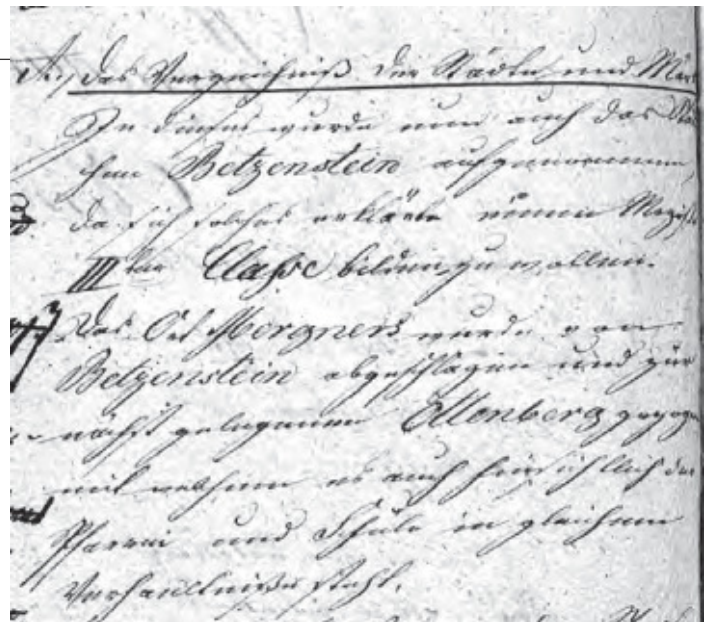 A, Das Verzeichniß der Städte und Mär
In dieses wurde nun auch das Städ
chen Betzenstein aufgenommen,
da sich solches erklärte einen Magist
IIIter Classe bilden zu wollen.
Das Ort Morgners wurde von
Betzenstein abgeschlagen und zur
nächst gelegenen Ottenberg gezogen
mit welchem es auch hinsichtlich der
Pfarrei und Schule in gleichem
Verhaeltniße steht.